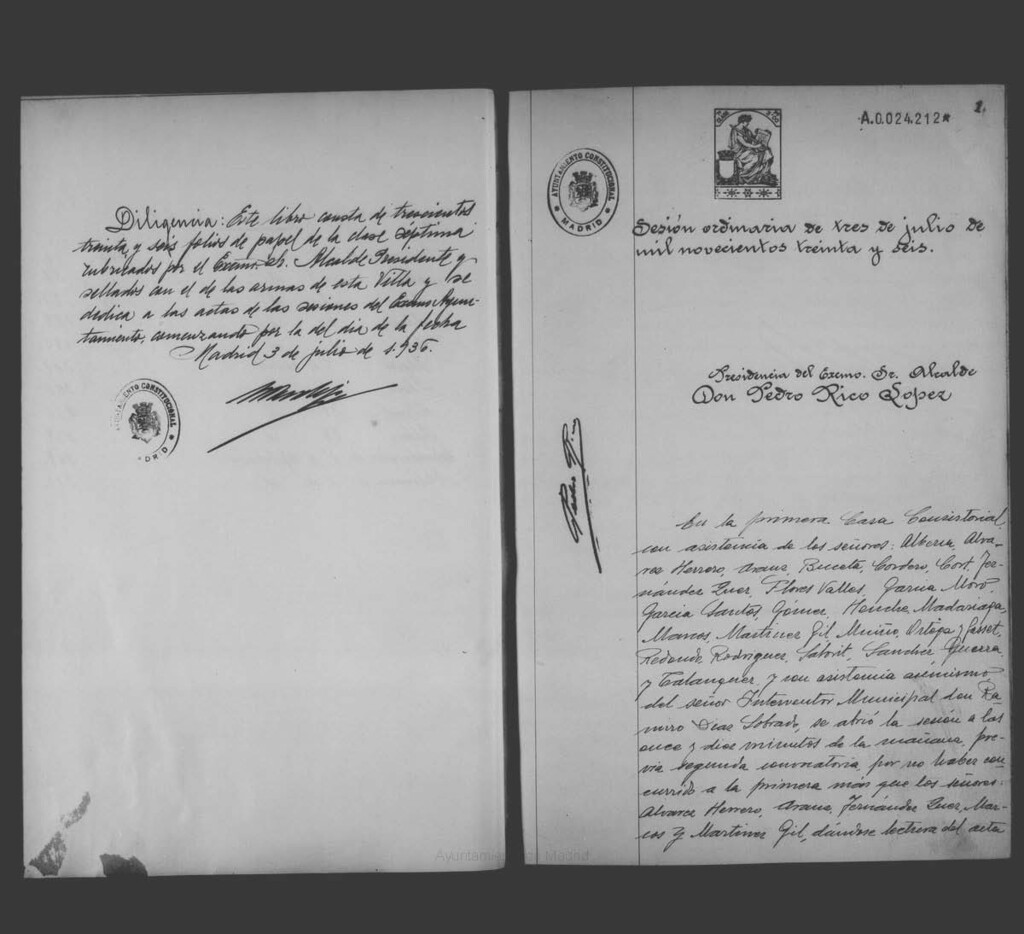 Diligencia: Este libro consta de trescientos
treinta y seis folios de papel de la clase septima
rubricados por el Excmo. Sr. Alcalde Presidente y
sellados con el de las armas de esta Villa y se
dedica a las actas de las sesiones del Excmo Ayun-
tamiento, comenzando por la del dia de la fecha
Madrid 3 de julio de 1.936.
AYUNTAMIENTO CONSTITUCIONAL
MADRID
1.
A.0.024.212*
AYUNTAMIENTO CONSTITUCIONAL
MADRID
Sesión ordinaria de tres de julio de
mil novecientos treinta y seis.
Presidencia del Excmo. Sr. Alcalde
Don Pedro Rico Lopez
Pedro Rico
En la primera Casa Consistorial,
con asistencia de los señores: Alberca, Alva-
rez Herrero, Arauz, Buceta, Cordero, Cort, Fer-
nández Quer, Flores Valles, Garcia Moro,
Garcia Santos, Gómez, Henche, Madariaga,
Marcos, Martinez Gil, Muiño, Ortega y Gasset,
Redondo, Rodriguez, Saborit, Sanchez Guerra
y Talanquer, y con asistencia asimismo
del señor Interventor Municipal don Ra-
miro Diaz Sobrado, se abrió la sesión a las
once y diez minutos de la mañana, pre-
via segunda convocatoria, por no haber con-
currido a la primera más que los señores:
Alvarez Herrero, Arauz, Fernández Quer, Mar-
cos y Martinez Gil, dándose lectura del acta
Ayuntamiento de Madrid